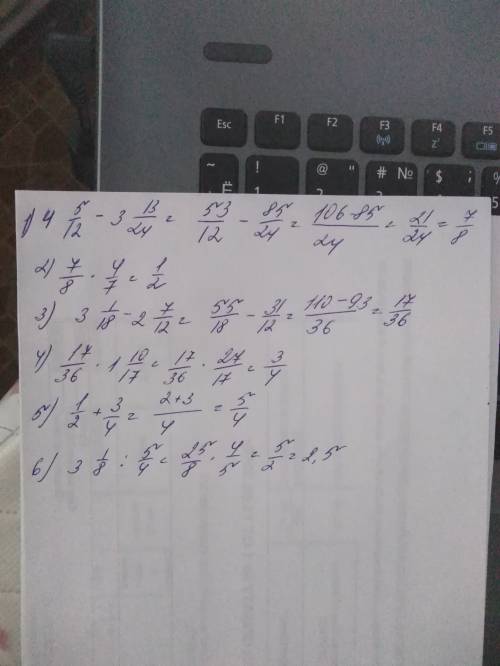 Esc F1 F2 F3 F4 F5
~ Ё ! 1 @ " # № $ ; % :
1) 4 5/12 - 3 13/24 = 53/12 - 85/24 = 106-85/24 = 21/24 = 7/8
2) 7/8 · 4/7 = 1/2
3) 3 1/18 - 2 7/12 = 55/18 - 31/12 = 110-93/36 = 17/36
4) 17/36 · 1 10/17 = 17/36 · 27/17 = 3/4
5) 1/2 + 3/4 = 2+3/4 = 5/4
6) 3 1/8 : 5/4 = 25/8 · 4/5 = 5/2 = 2,5